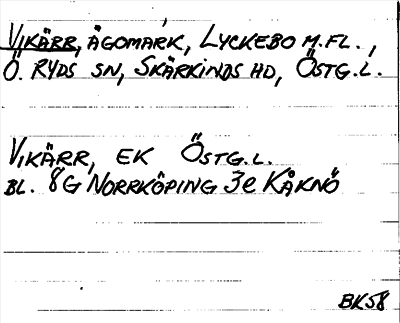 VIKÄRR, ÄGOMARK, LYCKEBO M.FL.,
Ö. RYDS SN, SKÄRKINDS HD, ÖSTG.L.
VIKÄRR, EK ÖSTG.L.
BL. 8G NORRKÖPING 3e KÅKNÖ
BK58